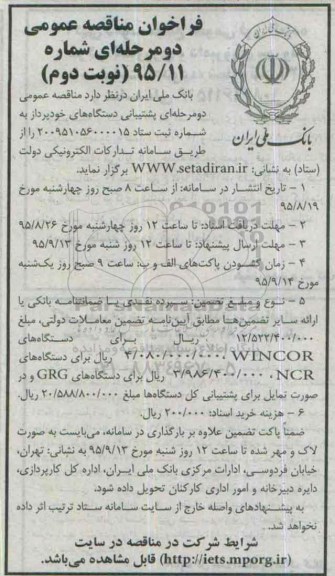 فراخوان مناقصه عمومی
دومرحله‌ای شماره
۹۵/۱۱ (نوبت دوم)
بانک ملی ایران
بانک ملی ایران درنظر دارد مناقصه عمومی
دومرحله‌ای پشتیبانی دستگاه‌های خودپرداز به
شماره ثبت ستاد ۲۰۰۹۵۱۰۵۶۰۰۰۰۱۵ را از
طریق سامانه تدارکات الکترونیکی دولت
(ستاد) به نشانی: WWW.setadiran.ir برگزار نماید.
۱ - تاریخ انتشار در سامانه: از ساعت ۸ صبح روز چهارشنبه مورخ
۹۵/۸/۱۹
۲ - مهلت دریافت اسناد: تا ساعت ۱۲ روز چهارشنبه مورخ ۹۵/۸/۲۶
۳ - مهلت ارسال پیشنهاد: تا ساعت ۱۲ روز شنبه مورخ ۹۵/۹/۱۳
۴ - زمان گشودن پاکت‌های الف و ب: ساعت ۹ صبح روز یک‌شنبه
مورخ ۹۵/۹/۱۴
۵ - نوع و مبلغ تضمین: سپرده نقدی یا ضمانتنامه بانکی یا
ارائه سایر تضمین‌ها مطابق آیین‌نامه تضمین معاملات دولتی، مبلغ
۱۲/۵۲۲/۴۰۰/۰۰۰ ریال برای دستگاه‌های
WINCOR، ۴/۰۸۰/۰۰۰/۰۰۰ ریال برای دستگاه‌های
NCR، ۳/۹۸۶/۴۰۰/۰۰۰ ریال برای دستگاه‌های GRG و در
صورت تمایل برای پشتیبانی کل دستگاه‌ها مبلغ ۲۰/۵۸۸/۸۰۰/۰۰۰ ریال.
۶ - هزینه خرید اسناد: ۲۰۰/۰۰۰ ریال.
ضمناً پاکت تضمین علاوه بر بارگذاری در سامانه، می‌بایست به صورت
لاک و مهر شده تا ساعت ۱۲ روز شنبه مورخ ۹۵/۹/۱۳ به نشانی: تهران،
خیابان فردوسی، ادارات مرکزی بانک ملی ایران، اداره کل کارپردازی،
دایره دبیرخانه و امور اداری کارکنان تحویل داده شود.
به پیشنهادهای واصله خارج از سایت سامانه ستاد ترتیب اثر داده
نخواهد شد.
شرایط شرکت در مناقصه در سایت
(http://iets.mporg.ir) قابل مشاهده می‌باشد.